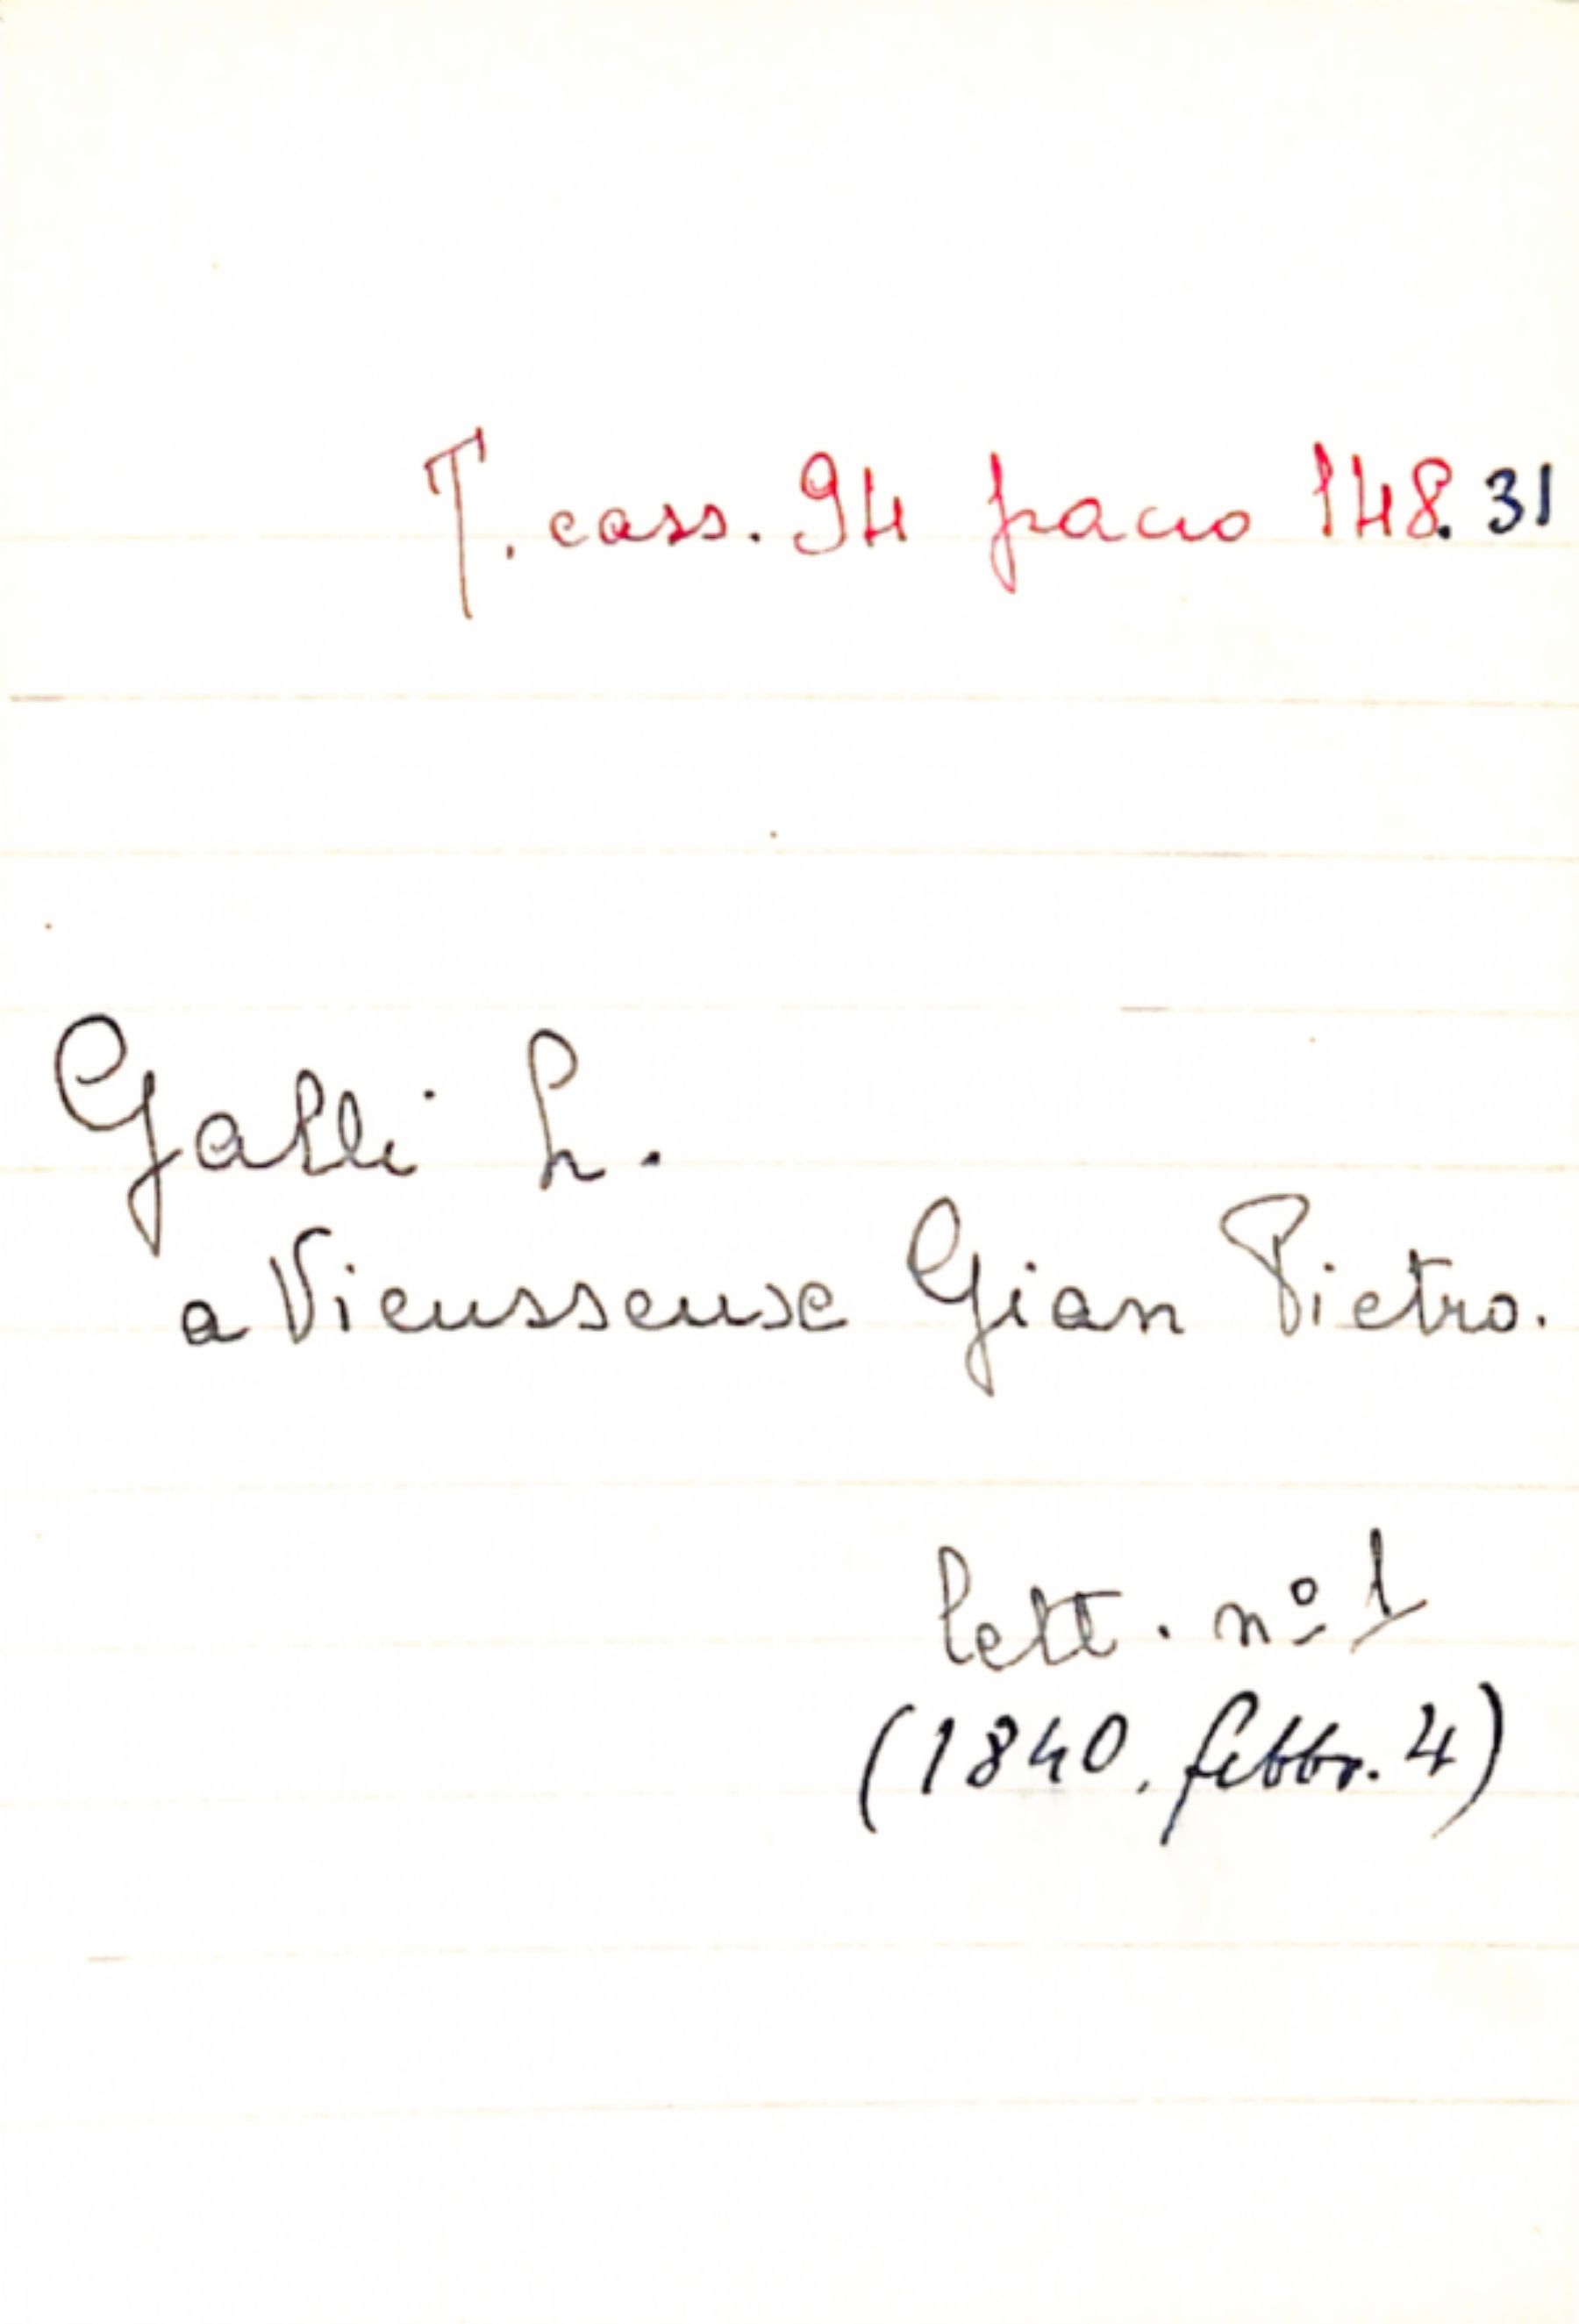 T. cass. 94 pacco 148.31
Galli L.
a Vieusseux Gian Pietro.
lett. nº 1
(1840, febbr. 4)